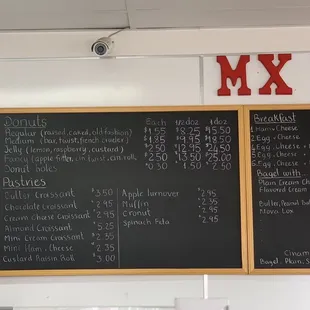 MX
Donuts Each ½ doz 1 doz
Regular (raised, cake, old fashion) $1.55 $8.25 $15.50
Medium (bar, twist, french cruler) $1.85 $9.95 $18.50
Jelly (lemon, raspberry, custard) $2.50 $12.95 $24.50
Fancy (apple fritter, cin twist, cin roll) $2.50 13.50 $25.00
Donut holes 0.30 1.50 $2.50
Pastries
Butter Croissant $3.50
Chocolate Croissant $2.95
Cream Cheese Croissant $2.95
Almond Croissant $5.25
Mini Cream Croissant $2.35
Mini Ham, Cheese $2.35
Custard Raisin Roll $3.00
Apple turnover $2.95
Muffin $2.95
Cronut $2.95
Spinach Feta $2.95
Breakfast
1. Ham + Cheese
2. Egg + Cheese
3. Egg + Cheese
4. Egg, Cheese
5. Egg, Cheese
6. Egg, Cheese
Bagel with
Plain Cream Ch
Flavored Cream
Butter, Peanut But
Nova Lox
Cinam
Bagel: Plain, S